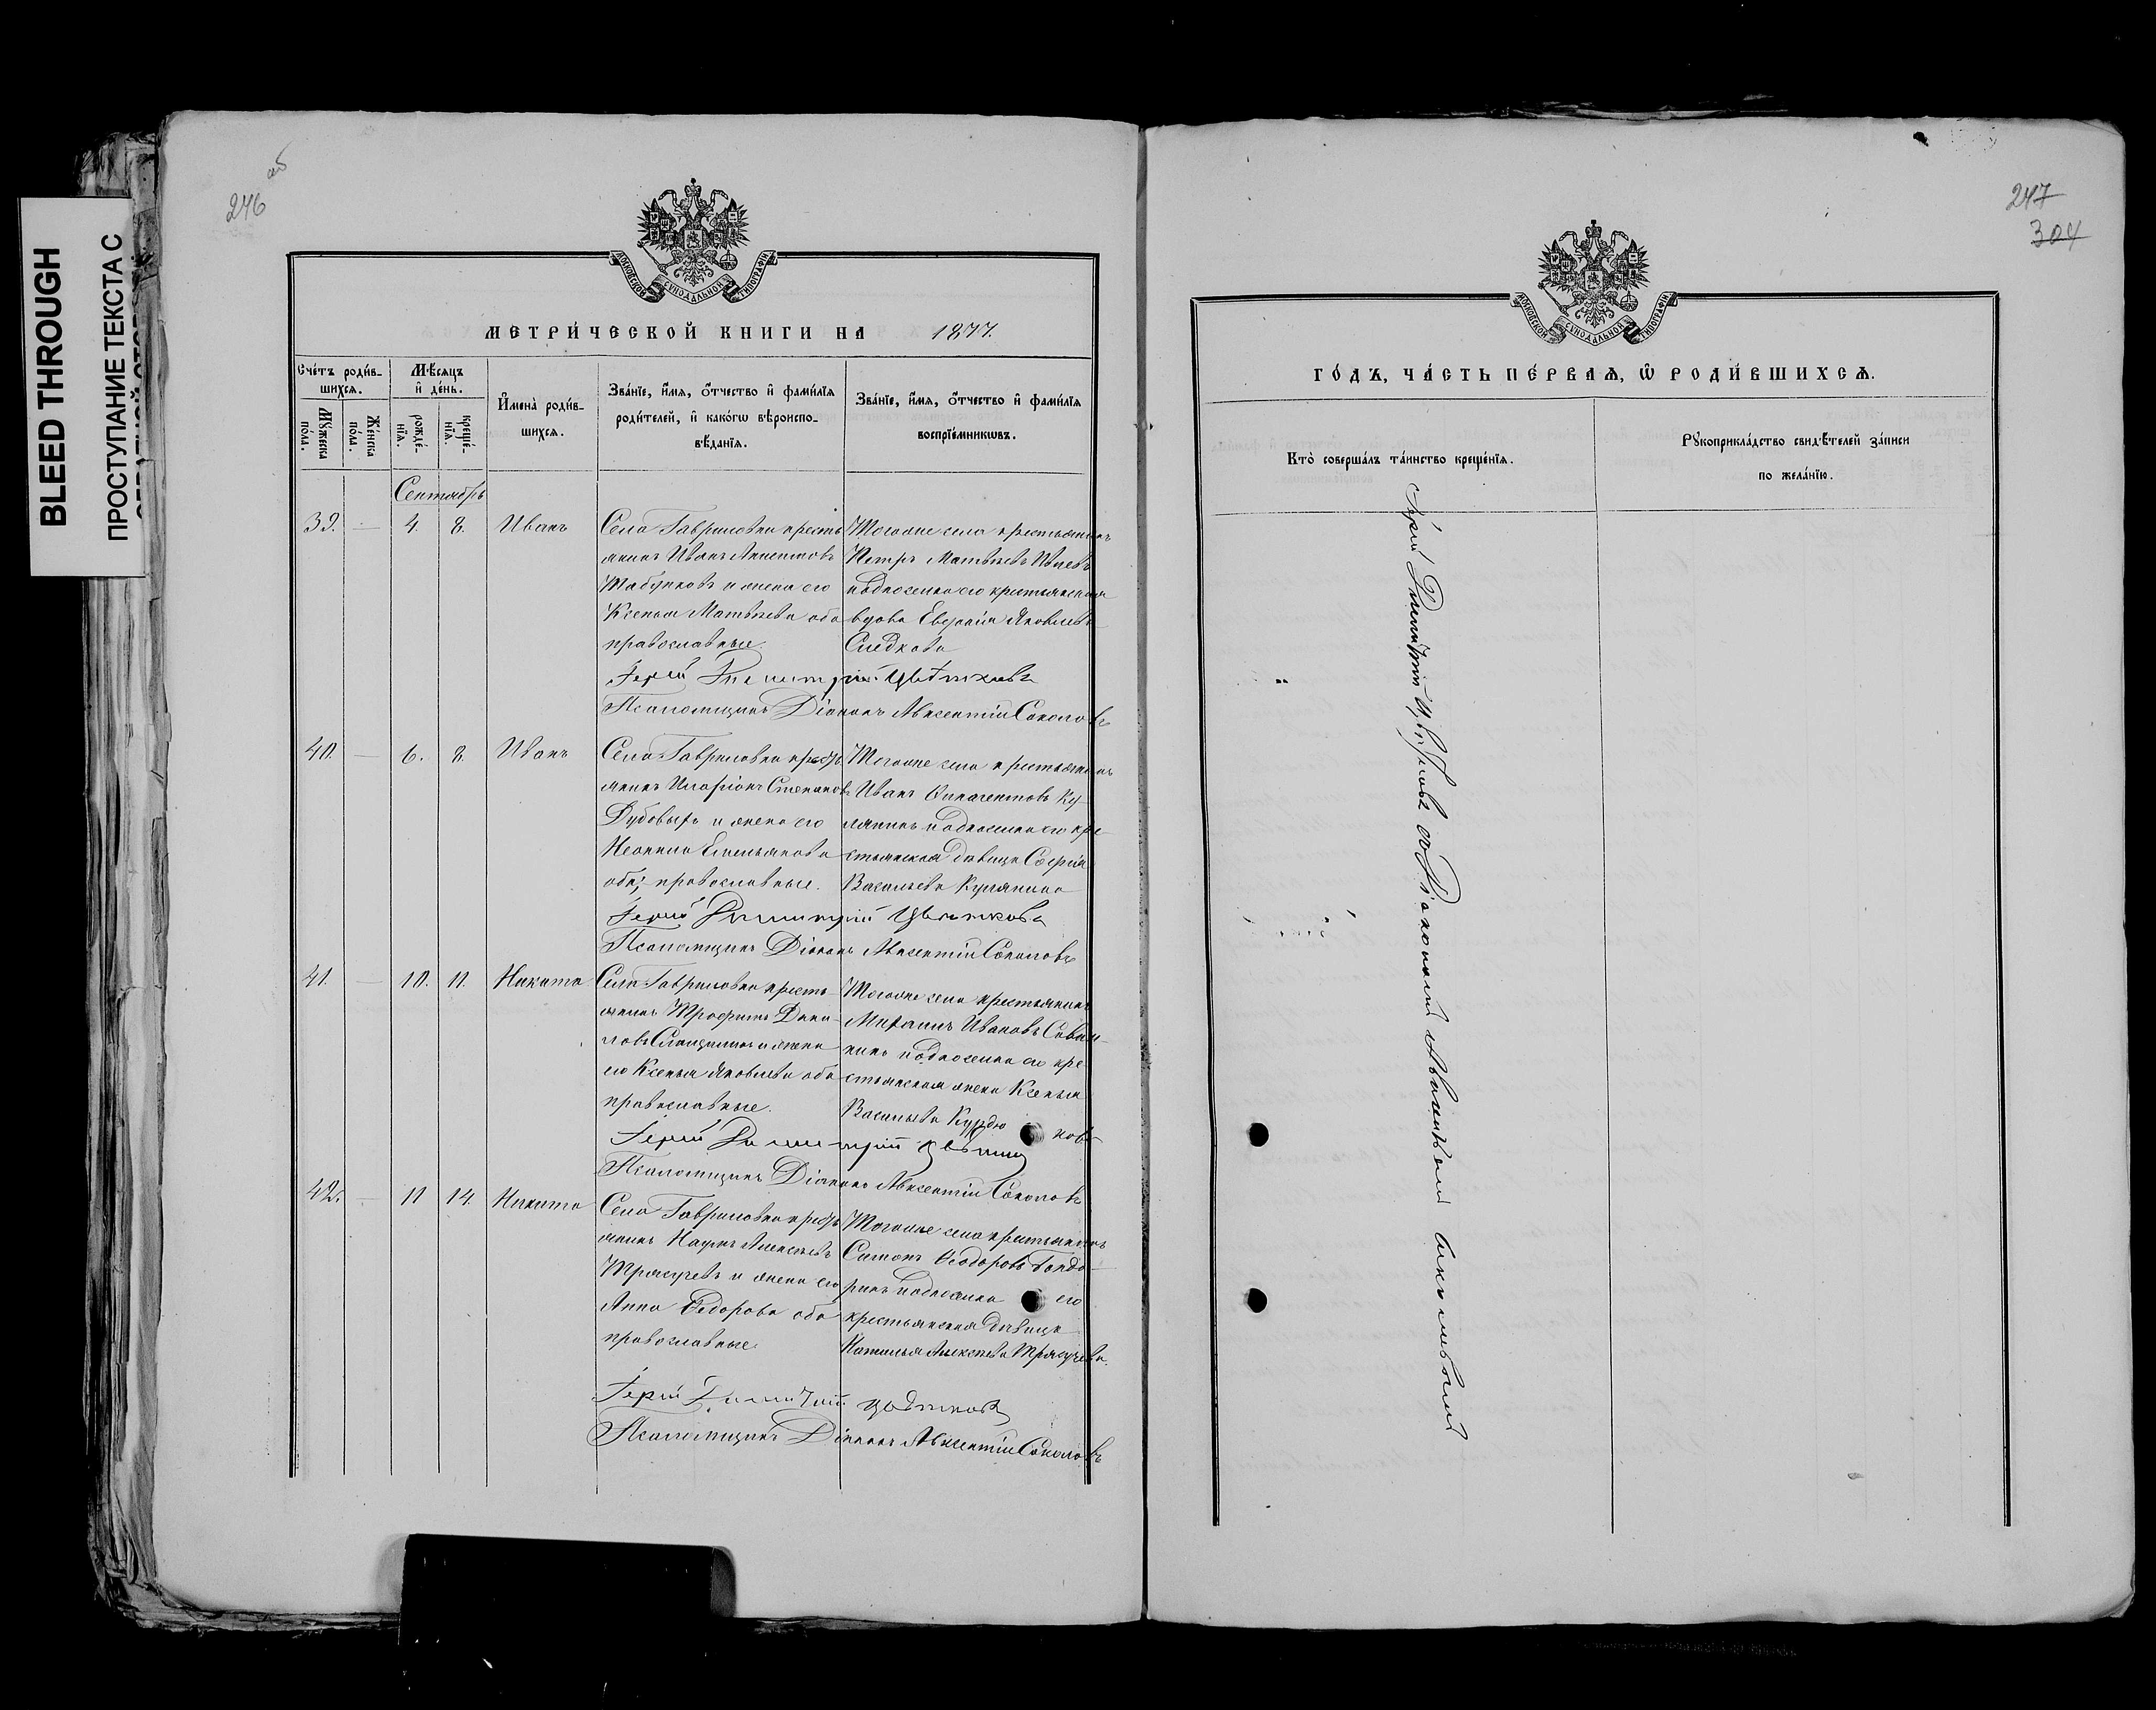 246 об
BLEED THROUGH
ПРОСТУПАНИЕ ТЕКСТА С
МОСКОВСКОЙ СѴНОДАЛЬНОЙ ТИПОГРАФІИ
МЕТРИ́ЧЕСКОЙ КНИГИ НА 1877.
Сче́тъ роди́в-
шихсѧ.
Мꙋ́жеска по́ла.
Же́нска по́ла.
Мѣ́сѧцъ
и҆ де́нь.
рожде́-
нїѧ.
креще́-
нїѧ.
И҆мена̀ роди́в-
шихсѧ.
Зва́нїе, и҆́мѧ, ѻ҆́тчество и҆ фами́лїѧ
роди́телей, и҆ како́гѡ вѣроиспо-
вѣ́данїѧ.
Зва́нїе, и҆́мѧ, ѻ҆́тчество и҆ фами́лїѧ
воспрїе́мникѡвъ.
Сентябрь
39. — 4. 8. Иванъ
Села Гавриловки кресть
янинъ Иванъ
Табунковъ и жена его
Ксенья Матвѣева оба
православные.
Тогоже села крестьянинъ
Петръ Матвѣевъ
подносила его крестьянская
вдова Яковлева
Следкова
Іерей Димитрій Цвѣтковъ
Псаломщикъ Діаконъ Авксентій Соколовъ
40. — 6. 8. Иванъ
Села Гавриловки крестьянинъ
Иларіонъ Степановъ
Дубовыръ и жена его
Неонила Емельянова
оба православные.
Тогоже села крестьянинъ
Иванъ Ку-
лякинъ подносила его кре-
стьянская дѣвица Софрія
Васильева Кулякина
Іерей Димитрій Цвѣтковъ
Псаломщикъ Діаконъ Авксентій Соколовъ
41. — 10. 11. Никита
Села Гавриловки кресть-
янинъ Трофимъ Дани-
ловъ и жена
его Ксенья Яковлева оба
православные.
Тогоже села крестьянинъ
Михаилъ Ивановъ Сави-
кинъ подносила его кре-
стьянская жена Ксенья
Васильева Курдю кова
Іерей Димитрій Цвѣтковъ
Псаломщикъ Діаконъ Авксентій Соколовъ
42. — 11 14. Никита
Села Гавриловки кресть
янинъ Наумъ Алексѣевъ
Трясучевъ и жена его
Анна Ѳедорова оба
православные.
Тогоже села крестьянинъ
Симонъ Ѳеодоровъ Бондо-
ринъ подносила его
крестьянская дѣвица
Наталья Алексѣева Трясучева.
Іерей Димитрій Цвѣтковъ
Псаломщикъ Діаконъ Авксентій Соколовъ
247
304
МОСКОВСКОЙ СѴНОДАЛЬНОЙ ТИПОГРАФІИ
ГО́ДЪ, ЧА́СТЬ ПЕ́РВАѦ, Ѡ҆ РОДИ́ВШИХСѦ.
Кто̀ соверша́лъ та́инство креще́нїѧ.
Рꙋкоприкла́дство свидѣ́телей за́писи
по жела́нїю.
Іерей Димитрій Цвѣтковъ съ Діакономъ Авксентіемъ Соколовымъ